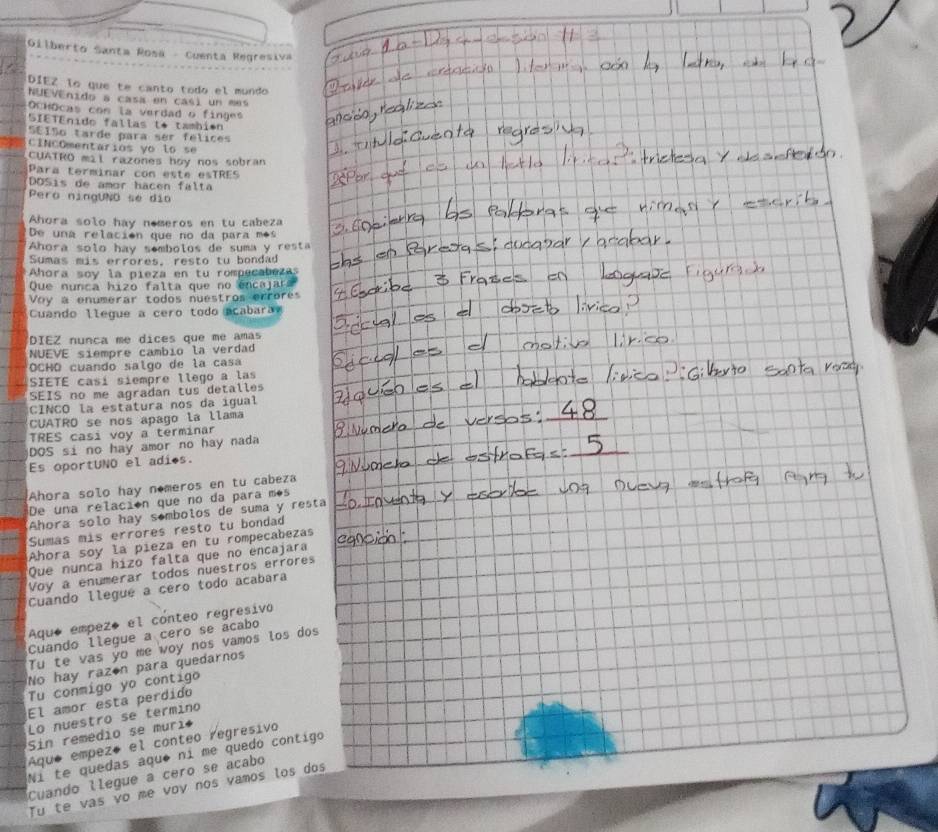 Gilberto Santa Rosa - Cuenta Regresiva
DIEZ lo que te canto todo el mundo
NUEVEnido a casa en casi un mes
OCHOcas con la verdad o finges
SIETEnido fallas t♦ tambi♦n
SEISo tarde para ser felices
CINCOmentarios yo lo se
CUATRO mil razones hoy nos sobran
Para terminar con este esTRES
DOSis de amor hacen falta
Pero ningUNO se dio
Ahora solo hay n♦meros en tu cabeza
De una relaci♦n que no da para m♦s
Ahora solo hay s♦mbolos de suma y resta
Sumas mis errores, resto tu bondad
Ahora soy la pieza en tu rompecabezas
Que nunca hizo falta que no encajara
Voy a enumerar todos nuestros errores
Cuando llegue a cero todo acabara
DIEZ nunca me dices que me amas
NUEVE siempre cambio la verdad
OCHO cuando salgo de la casa
SIETE casi siempre llego a las
SEIS no me agradan tus detalles
CINCO la estatura nos da igual
CUATRO se nos apago la llama
TRES casi voy a terminar
DOS si no hay amor no hay nada
Es oportUNO el adi♦s.
Ahora solo hay n♦meros en tu cabeza
De una relaci♦n que no da para m♦s
Ahora solo hay s♦mbolos de suma y resta
Sumas mis errores resto tu bondad
Ahora soy la pieza en tu rompecabezas
Que nunca hizo falta que no encajara
Voy a enumerar todos nuestros errores
Cuando llegue a cero todo acabara
Aqu♦ empez♦ el conteo regresivo
Cuando llegue a cero se acabo
Tu te vas yo me voy nos vamos los dos
No hay raz♦n para quedarnos
Tu conmigo yo contigo
El amor esta perdido
Lo nuestro se termino
Sin remedio se muri♦
Aqu♦ empez♦ el conteo regresivo
Ni te quedas aqu♦ ni me quedo contigo
Cuando llegue a cero se acabo
Tu te vas yo me voy nos vamos los dos
#3
de creación literaria con la letra
realiza:
1. titulo: Cuenta regresiva
2. Por qué es un texto lirico?: tristesa y
3. las palabras que riman y escrib-
elas en Parejas: / acabar.
4. Escribe 3 Frases en lenguaje Figurado
5. ¿cual es el objeto lirico?
6. ¿cual es el motivo lirico.
7. ¿quién es el hablante lirico?: Gilberto santa rosa
8. Numero de versos: 48
9. Numero de estrofas: 5
10. Inventa y escribe una nueva estrofa para tu
canción: